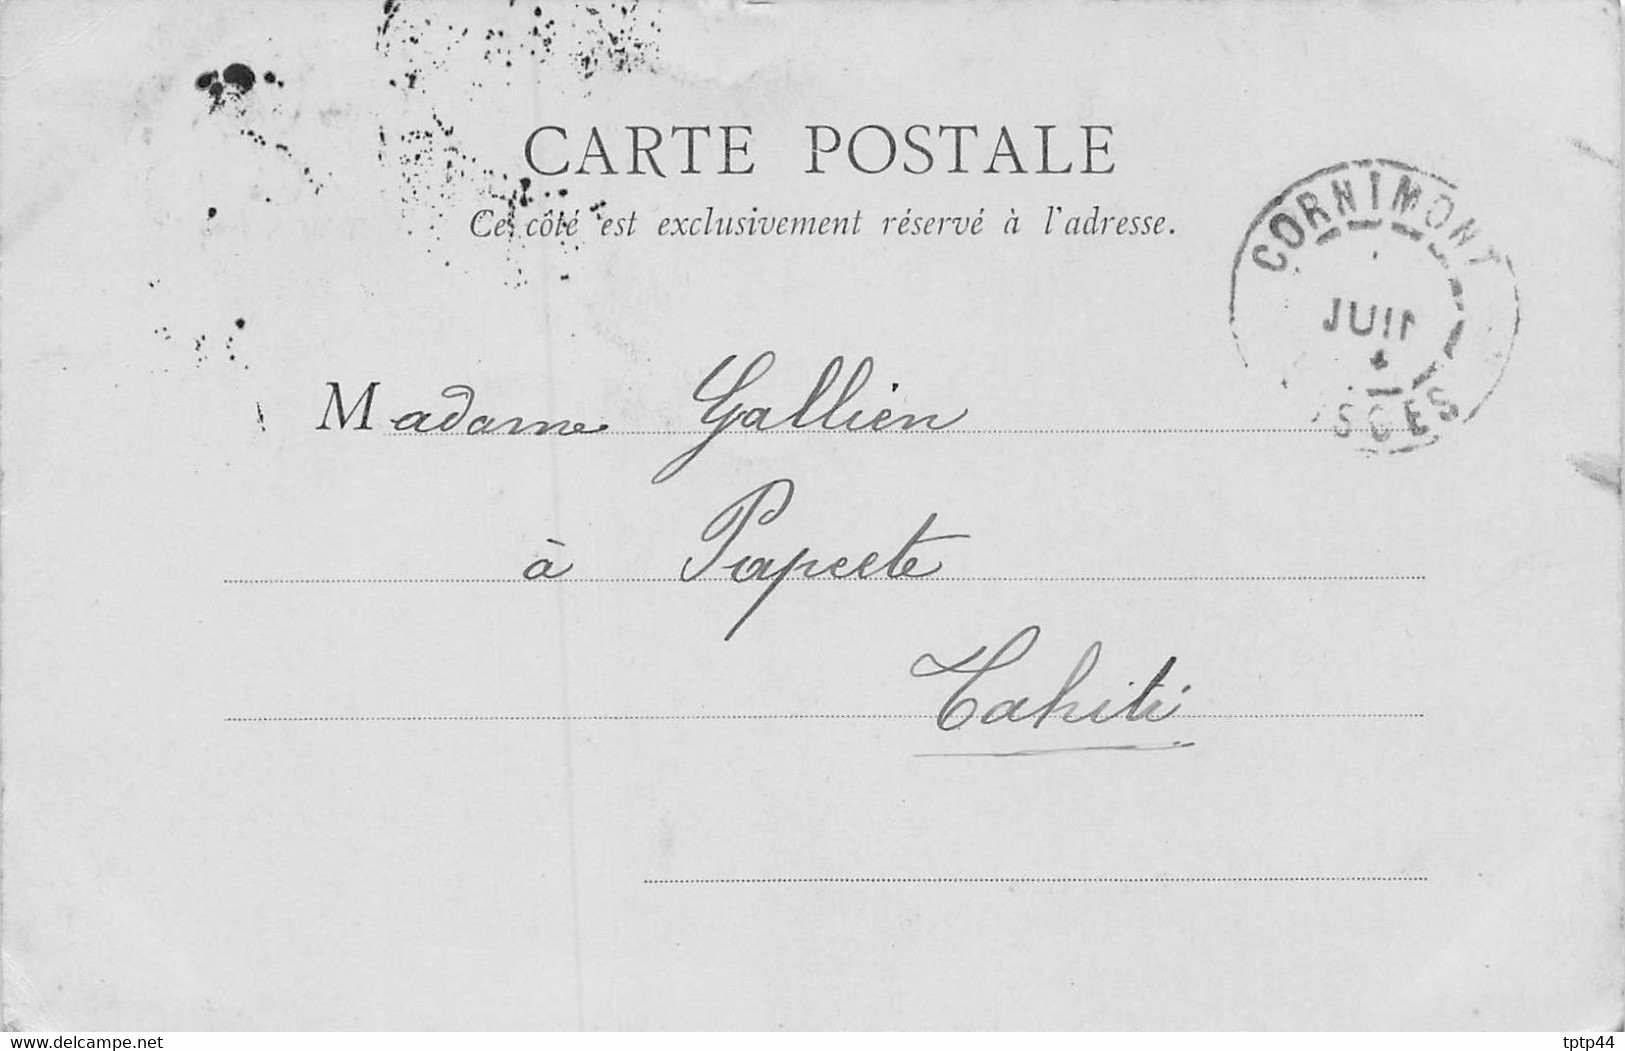 CARTE POSTALE
Ce côté est exclusivement réservé à l'adresse.
CORNIMONT
JUIN
VOSGES
Madame Gallien
à Papeete
Tahiti
www.delcampe.net
tptp44